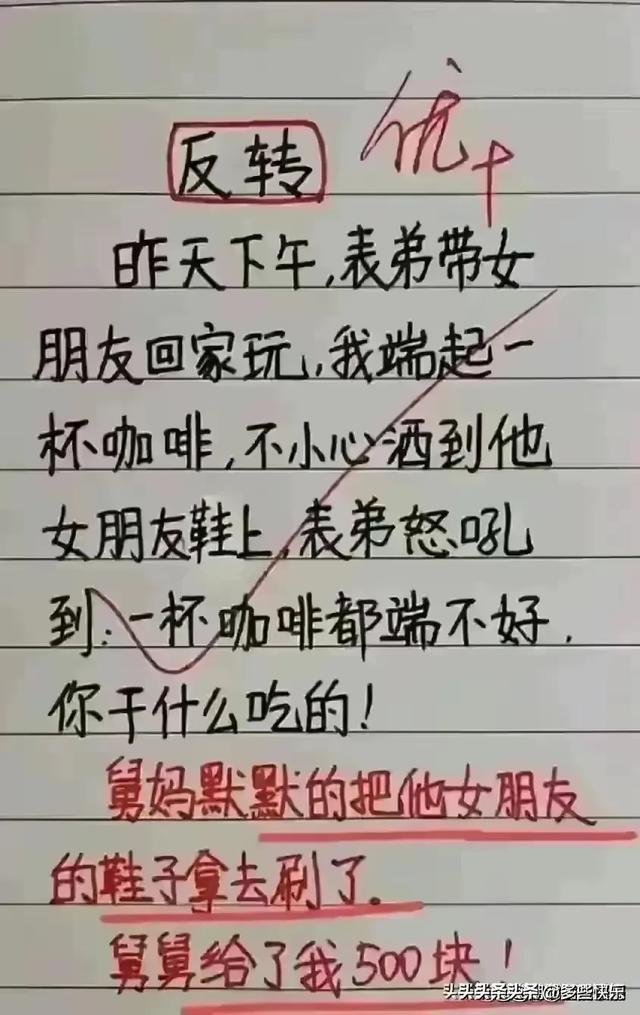 反转
优+
昨天下午,表弟带女
朋友回家玩,我端起一
杯咖啡,不小心洒到他
女朋友鞋上,表弟怒吼
到:一杯咖啡都端不好,
你干什么吃的!
舅妈默默的把他女朋友
的鞋子拿去刷了。
舅舅给了我500块!